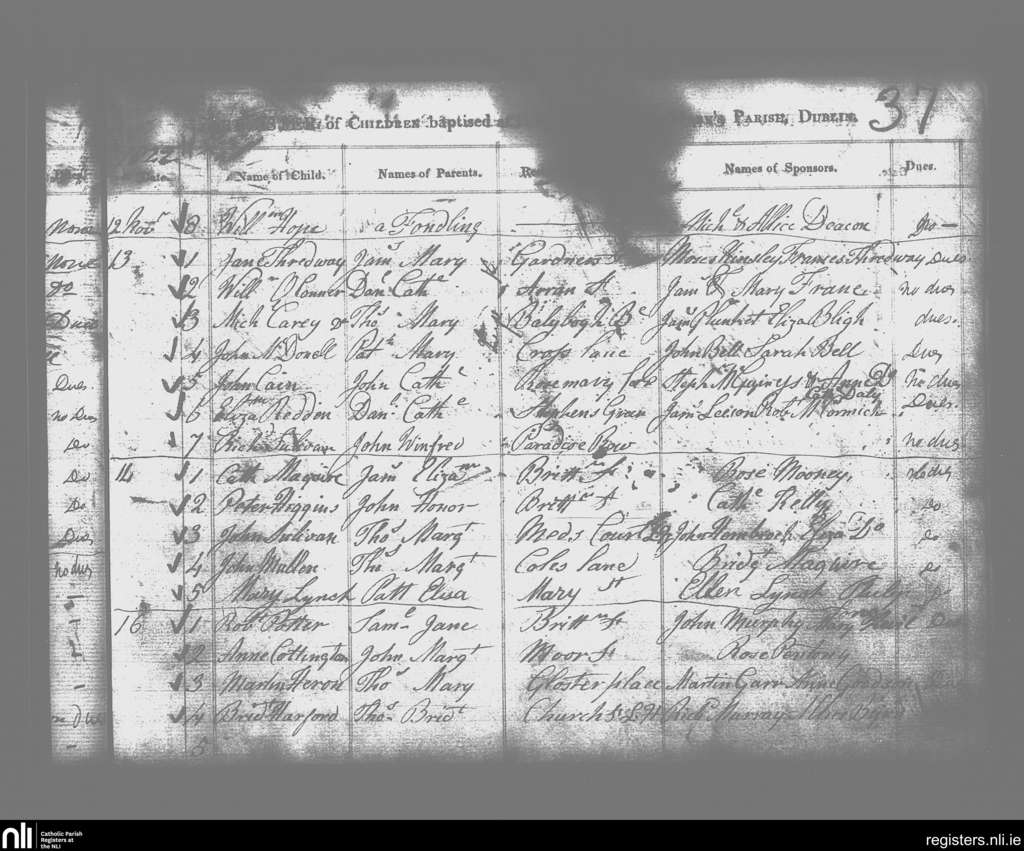 37
of CHILDREN baptised PARISH, DUBLIN.
Date. Name of Child. Names of Parents. Names of Sponsors. Dues.
None 12 Novr 8 Willm Hope a Fondling — Michl & Alice Deacon No —
None 13 1 Jane Thredway Jams Mary Gardners St Moses Kinsley Frances Thredway Dues
Do 2 Willm O'Conner Danl Cathe St Jams & Mary Frane no dues
Dues 3 Mich Carey Thos Mary Balybogh Jams Plunket Eliza Bligh dues
4 John McDonell Patk Mary Cross lane John Bell Sarah Bell Dues
Dues 5 John Cain John Cathe Rosemary lane Steph McGuiness & Anne Do no dues
no Dues 6 Elizath Redden Danl Cathe Stephens Green Jams Leeson Robt McCormick Cathe Daly Dues
Do 7 Richd Sulivan John Winfred Paradise Row no dues
Do 14 1 Cath Maguire Jams Eliza Brittn St Rose Mooney no dues
Do 2 Peter Higgins John Honor Brittn St Cathe Kelly Do
Dues 3 John Sulivan Thos Margt Meds Court John Hambrock Eliza Do Do
no dues 4 John Mullen Thos Margt Coles lane Bridgt Maguire
5 Mary Lynch Patt Elisa Mary St Ellen Lynch
16 1 Robt Potter Saml Jane Brittn St John Murphy Mary
2 Anne Cottington John Margt Moor St Rose Pentony
3 Martin Heron Thos Mary Gloster place Martin Garr Anne
4 Bridt Harford Thos Bridt Church St Richd Murray
5
nli Catholic Parish
Registers at
the NLI
registers.nli.ie